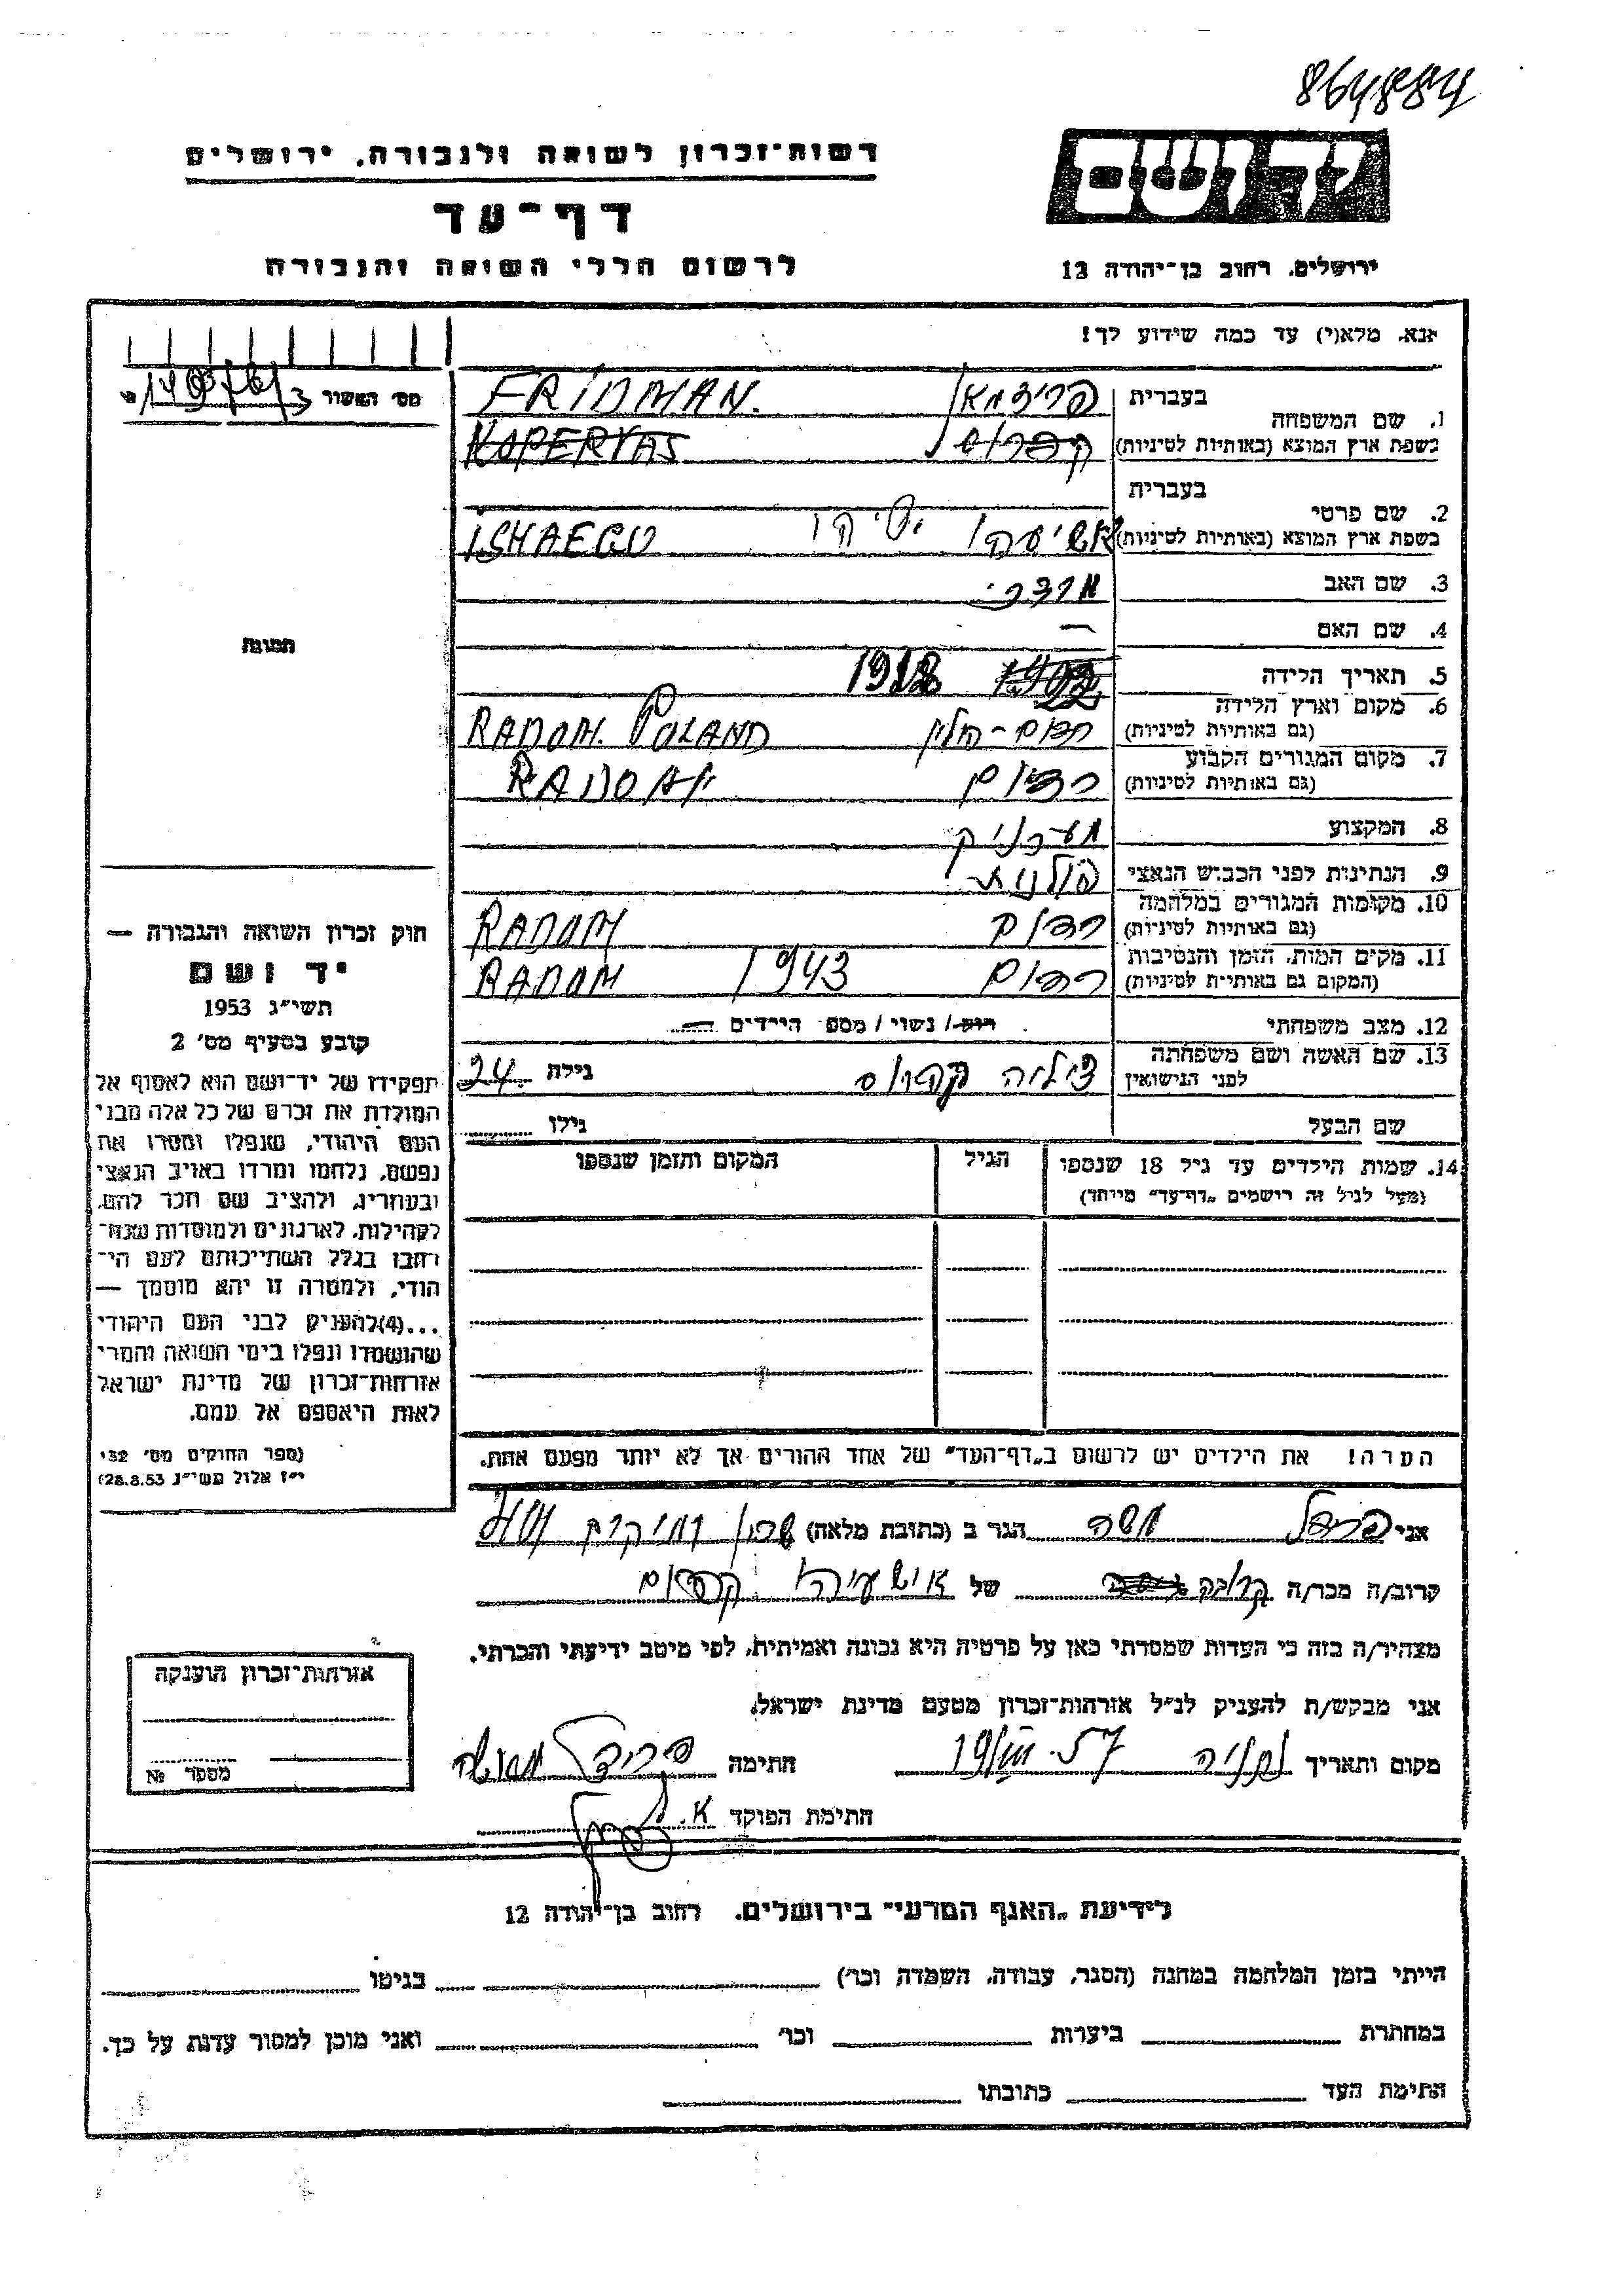 864884
רשות־זכרון לשואה ולגבורה, ירושלים
יד ושם
דף־עד
לרשום חללי השואה והגבורה
ירושלים, רחוב בן־יהודה 12
אנא, מלא(י) עד כמה שידוע לך!
מס' האשור
1. שם המשפחה
בעברית
פרידמאן FRIDMAN.
בשפת ארץ המוצא (באותיות לטיניות)
KOPERVAS
2. שם פרטי
בעברית
בשפת ארץ המוצא (באותיות לטיניות)
3. שם האב
4. שם האם —
5. תאריך הלידה
6. מקום וארץ הלידה
(גם באותיות לטיניות)
רדום-פולין RADOM. POLAND
7. מקום המגורים הקבוע
(גם באותיות לטיניות)
רדום RADOM
8. המקצוע
9. הנתינות לפני הכבוש הנאצי פולנית
10. מקומות המגורים במלחמה
(גם באותיות לטיניות)
רדום RADOM
11. מקום המות, הזמן והנסיבות
(המקום גם באותיות לטיניות)
רדום 1943 RADOM
12. מצב משפחתי רוק/ נשוי/ מספר הילדים
13. שם האשה ושם משפחתה
לפני הנישואין
צילה גילה 24
שם הבעל גילו
14. שמות הילדים עד גיל 18 שנספו הגיל המקום והזמן שנספו
(מעל לגיל זה רושמים "דף־עד" מיוחד)
הערה! את הילדים יש לרשום ב"דף־העד" של אחד ההורים אך לא יותר מפעם אחת.
תמונה
חוק זכרון השואה והגבורה —
יד ושם
תשי"ג 1953
קובע בסעיף מס' 2
תפקידו של יד־ושם הוא לאסוף אל
המולדת את זכרם של כל אלה מבני
העם היהודי, שנפלו ומסרו את
נפשם, נלחמו ומרדו באויב הנאצי
ובעוזריו, ולהציב שם וזכר להם,
לקהילות, לארגונים ולמוסדות שנח־
רבו בגלל השתייכותם לעם הי־
הודי, ולמטרה זו יהא מוסמך —
...(4)להעניק לבני העם היהודי
שהושמדו ונפלו בימי השואה והמרי
אזרחות־זכרון של מדינת ישראל
לאות היאספם אל עמם.
(ספר החוקים מס' 132
י"ז אלול תשי"ג 28.8.53)
אני משה הגר ב (כתובת מלאה)
קרוב/ה מכר/ה של
מצהיר/ה בזה כי העדות שמסרתי כאן על פרטיה היא נכונה ואמיתית, לפי מיטב ידיעתי והכרתי.
אני מבקש/ת להעניק לנ"ל אזרחות־זכרון מטעם מדינת ישראל.
מקום ותאריך חתימה
חתימת הפוקד
אזרחות־זכרון הוענקה
מספר №
לידיעת "האגף המדעי" בירושלים, רחוב בן־יהודה 12
הייתי בזמן המלחמה במחנה (הסגר, עבודה, השמדה, וכו') בגיטו
במחתרת ביערות וכו' ואני מוכן למסור עדות על כך.
חתימת העד כתובתו